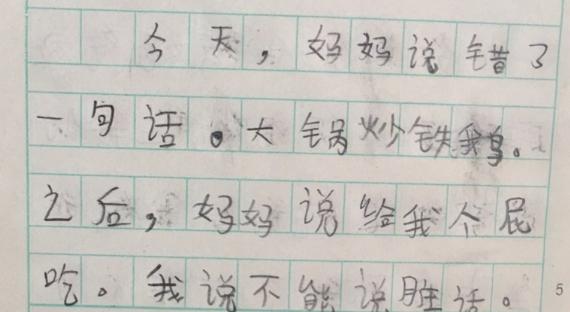 今天，妈妈说错了
一句话。大锅炒铁鹅。
之后，妈妈说给我个屁
吃。我说不能说脏话。
5